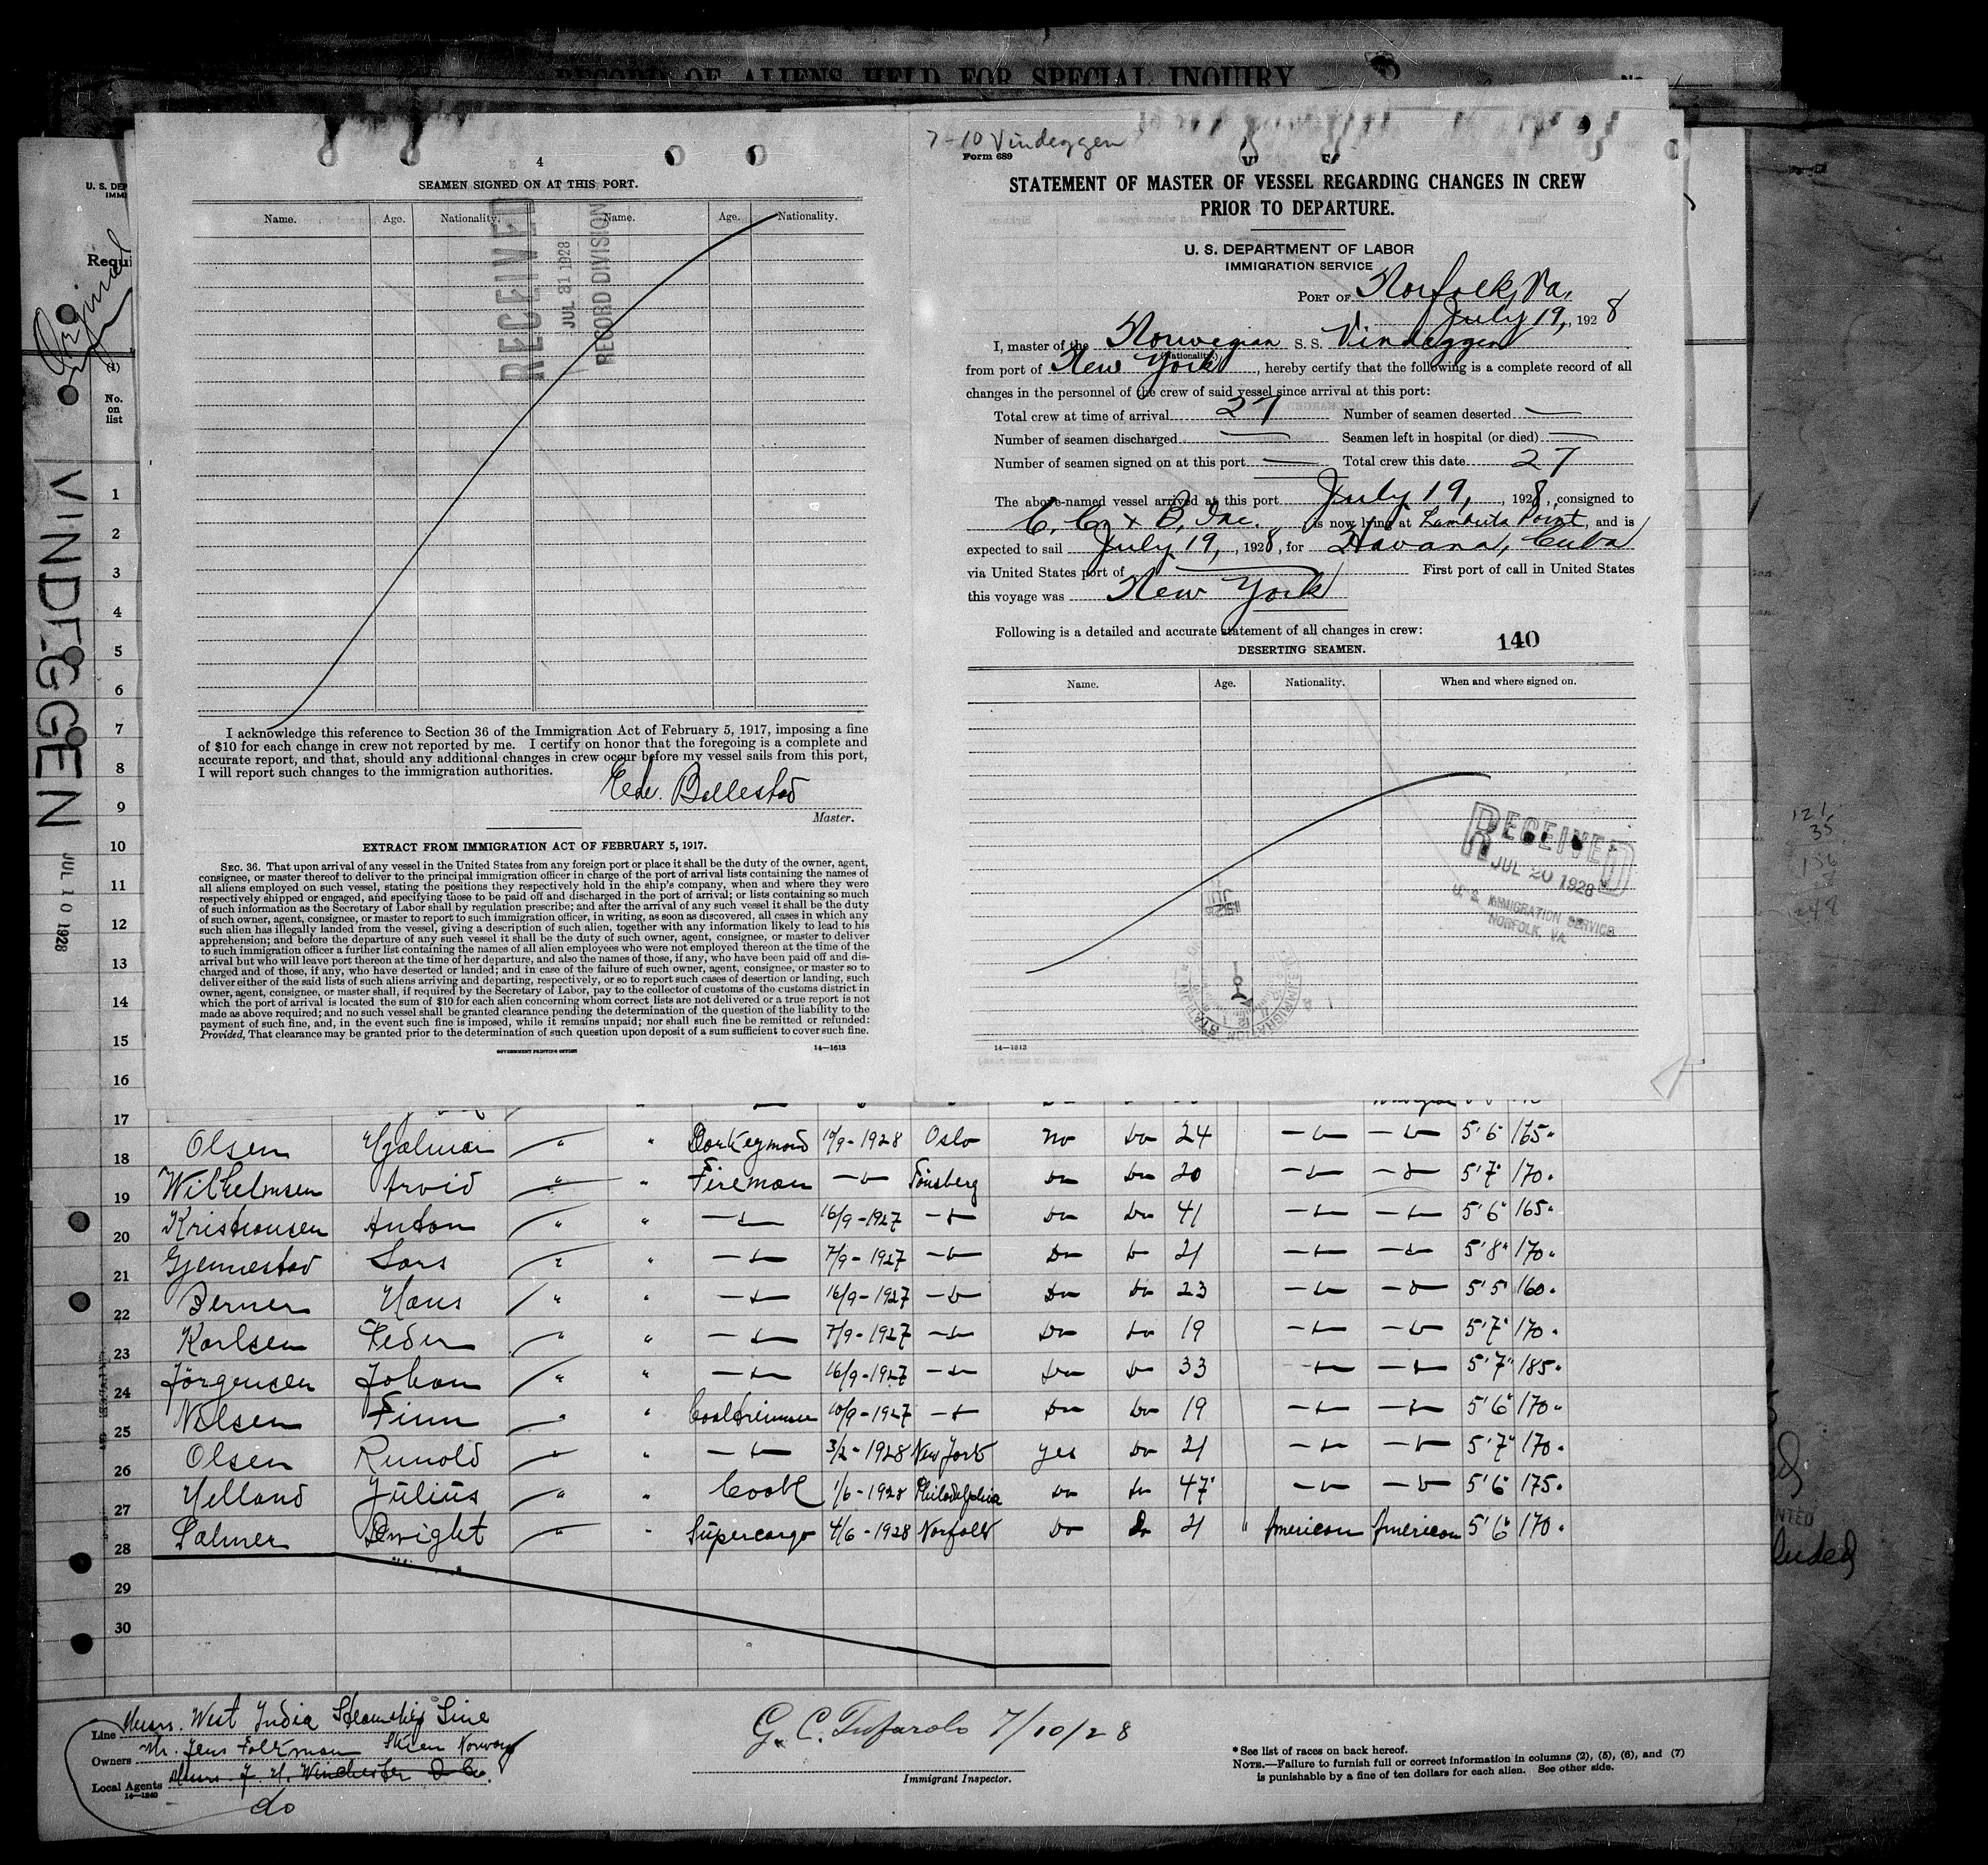 RECORD OF ALIENS HELD FOR SPECIAL INQUIRY
4
SEAMEN SIGNED ON AT THIS PORT.
Name. Age. Nationality. Name. Age. Nationality.
RECEIVED
JUL 31 1928
RECORD DIVISION
I acknowledge this reference to Section 36 of the Immigration Act of February 5, 1917, imposing a fine
of $10 for each change in crew not reported by me. I certify on honor that the foregoing is a complete and
accurate report, and that, should any additional changes in crew occur before my vessel sails from this port,
I will report such changes to the immigration authorities.
Master.
EXTRACT FROM IMMIGRATION ACT OF FEBRUARY 5, 1917.
SEC. 36. That upon arrival of any vessel in the United States from any foreign port or place it shall be the duty of the owner, agent,
consignee, or master thereof to deliver to the principal immigration officer in charge of the port of arrival lists containing the names of
all aliens employed on such vessel, stating the positions they respectively hold in the ship's company, when and where they were
respectively shipped or engaged, and specifying those to be paid off and discharged in the port of arrival; or lists containing so much
of such information as the Secretary of Labor shall by regulation prescribe; and after the arrival of any such vessel it shall be the duty
of such owner, agent, consignee, or master to report to such immigration officer, in writing, as soon as discovered, all cases in which any
such alien has illegally landed from the vessel, giving a description of such alien, together with any information likely to lead to his
apprehension; and before the departure of any such vessel it shall be the duty of such owner, agent, consignee, or master to deliver
to such immigration officer a further list containing the names of all alien employees who were not employed thereon at the time of the
arrival but who will leave port thereon at the time of her departure, and also the names of those, if any, who have been paid off and dis-
charged and of those, if any, who have deserted or landed; and in case of the failure of such owner, agent, consignee, or master so to
deliver either of the said lists of such aliens arriving and departing, respectively, or so to report such cases of desertion or landing, such
owner, agent, consignee, or master shall, if required by the Secretary of Labor, pay to the collector of customs of the customs district in
which the port of arrival is located the sum of $10 for each alien concerning whom correct lists are not delivered or a true report is not
made as above required; and no such vessel shall be granted clearance pending the determination of the question of the liability to the
payment of such fine, and, in the event such fine is imposed, while it remains unpaid; nor shall such fine be remitted or refunded:
Provided, That clearance may be granted prior to the determination of such question upon deposit of a sum sufficient to cover such fine.
GOVERNMENT PRINTING OFFICE 14—1613
7-10 Vindeggen
Form 689
STATEMENT OF MASTER OF VESSEL REGARDING CHANGES IN CREW
PRIOR TO DEPARTURE.
U. S. DEPARTMENT OF LABOR
IMMIGRATION SERVICE
PORT OF Norfolk, Va.
July 19, 1928
I, master of the Norwegian S. S. Vindeggen
(Nationality)
from port of New York, hereby certify that the following is a complete record of all
changes in the personnel of the crew of said vessel since arrival at this port:
Total crew at time of arrival 27 Number of seamen deserted —
Number of seamen discharged — Seamen left in hospital (or died) —
Number of seamen signed on at this port — Total crew this date 27
The above-named vessel arrived at this port July 19, 1928, consigned to
C. C. & B. Inc. is now lying at Lamberts Point, and is
expected to sail July 19, 1928, for Havana, Cuba
via United States port of — First port of call in United States
this voyage was New York
Following is a detailed and accurate statement of all changes in crew:
140
DESERTING SEAMEN.
Name. Age. Nationality. When and where signed on.
RECEIVED
JUL 20 1928
U. S. IMMIGRATION SERVICE
NORFOLK, VA.
14—1613
U. S. DEP
IMMI
Requi
Original
(1)
No.
on
list
VINDEGGEN
JUL 10 1928
1
2
3
4
5
6
7
8
9
10
11
12
13
14
15
16
17
18 Olsen Hjalmar " " Donkeyman 10/9-1928 Oslo No Do 24 5'6" 165.
19 Wilhelmsen Arvid " " Fireman Tönsberg Do Do 20 5'7" 170.
20 Kristiansen Anton " " 16/9-1927 Do Do 41 5'6" 165.
21 Gjennestad Lars " " 7/9-1927 Do Do 21 5'8" 170.
22 Berner Hans " " 16/9-1927 Do Do 23 5'5" 160.
23 Karlsen Peder " " 7/9-1927 Do Do 19 5'7" 170.
24 Jörgensen Johan " " 16/9-1927 Do Do 33 5'7" 185.
25 Nilsen Finn " " Coaltrimmer 10/9-1927 Do Do 19 5'6" 170.
26 Olsen Reinold " " 3/2-1928 New York yes Do 21 5'7" 170.
27 Helland Julius " " Cook 1/6-1928 Philadelphia Do Do 47 5'6" 175.
28 Palmer Dwight " " Supercargo 4/6-1928 Norfolk Do Do 21 " American American 5'6" 170.
29
30
Line Messrs. West India Steamship Line
Owners Mr. Jens Folkman Skien Norway
Local Agents Messrs. J. H. Winchester & Co.
14—1240
do
G. C. Tufarolo 7/10/28
Immigrant Inspector.
* See list of races on back hereof.
NOTE.—Failure to furnish full or correct information in columns (2), (5), (6), and (7)
is punishable by a fine of ten dollars for each alien. See other side.